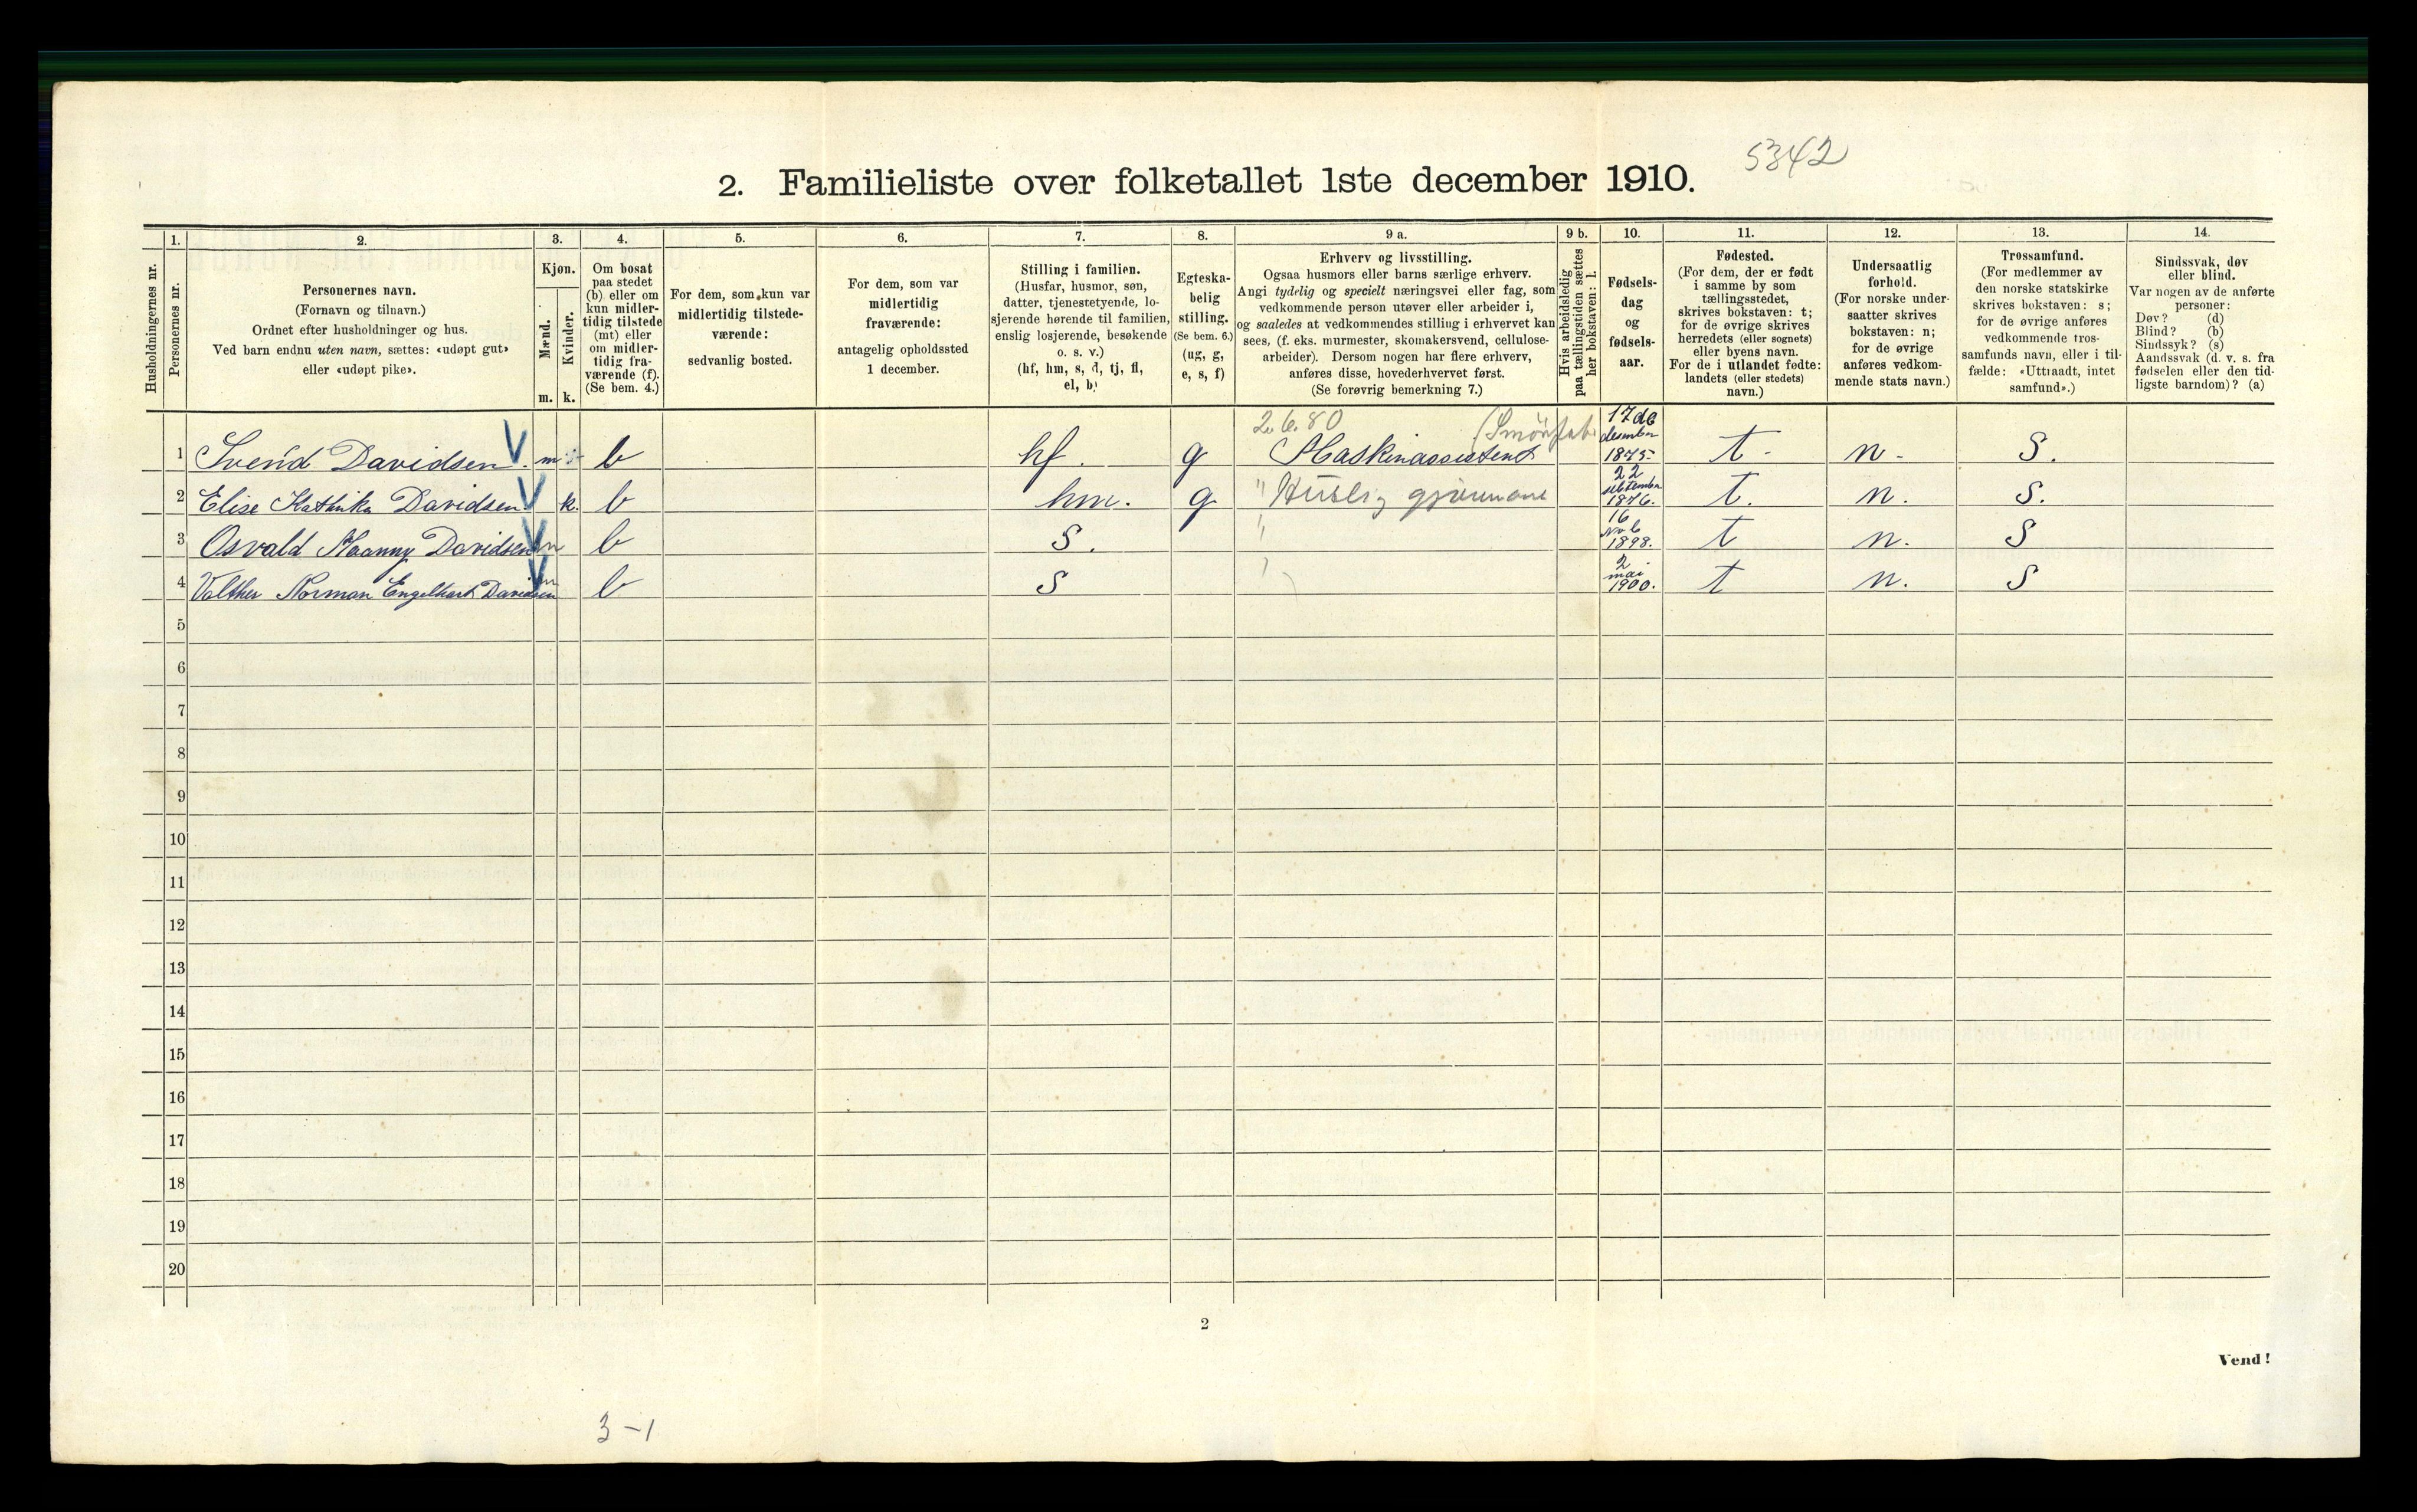 5342
2. Familieliste over folketallet 1ste december 1910.
Husholdningernes nr.
1.
Personernes nr.
2.
Personernes navn.
(Fornavn og tilnavn.)
Ordnet efter husholdninger og hus.
Ved barn endnu uten navn, sættes: «udøpt gut»
eller «udøpt pike».
3.
Kjøn.
Mænd.
Kvinder.
m. k.
4.
Om bosat
paa stedet
(b) eller om
kun midler-
tidig tilstede
(mt) eller
om midler-
tidig fra-
værende (f).
(Se bem. 4.)
5.
For dem, som kun var
midlertidig tilstede-
værende:
sedvanlig bosted.
6.
For dem, som var
midlertidig
fraværende:
antagelig opholdssted
1 december.
7.
Stilling i familien.
(Husfar, husmor, søn,
datter, tjenestetyende, lo-
sjerende hørende til familien,
enslig losjerende, besøkende
o. s. v.)
(hf, hm, s, d, tj, fl,
el, b)
8.
Egteska-
belig
stilling.
(Se bem. 6.)
(ug, g,
e, s, f)
9 a.
Erhverv og livsstilling.
Ogsaa husmors eller barns særlige erhverv.
Angi tydelig og specielt næringsvei eller fag, som
vedkommende person utøver eller arbeider i,
og saaledes at vedkommendes stilling i erhvervet kan
sees, (f. eks. murmester, skomakersvend, cellulose-
arbeider). Dersom nogen har flere erhverv,
anføres disse, hovederhvervet først.
(Se forøvrig bemerkning 7.)
9 b.
Hvis arbeidsledig
paa tællingstiden sættes
her bokstaven: l.
10.
Fødsels-
dag
og
fødsels-
aar.
11.
Fødested.
(For dem, der er født
i samme by som
tællingsstedet,
skrives bokstaven: t;
for de øvrige skrives
herredets (eller sognets)
eller byens navn.
For de i utlandet fødte:
landets (eller stedets)
navn.)
12.
Undersaatlig
forhold.
(For norske under-
saatter skrives
bokstaven: n;
for de øvrige
anføres vedkom-
mende stats navn.)
13.
Trossamfund.
(For medlemmer av
den norske statskirke
skrives bokstaven: s;
for de øvrige anføres
vedkommende tros-
samfunds navn, eller i til-
fælde: «Uttraadt, intet
samfund».)
14.
Sindssvak, døv
eller blind.
Var nogen av de anførte
personer:
Døv? (d)
Blind? (b)
Sindssyk? (s)
Aandssvak (d. v. s. fra
fødselen eller den tid-
ligste barndom)? (a)
2.6.80 (Smörfab
1 Svend Davidsen. m b hf. g Maskinassistent 17de desember 1875 t - n - S.
2 Elise Kathinka Davidsen k. b hm. g " Huslig gjøremaal 22 september 1876. t. n. S.
3 Osvald Davidsen m b S. " 16 1898. t n. S
4 Valther Norman Engelhart Davidsen m b S " 2 mai 1900. t n. S
5
6
7
8
9
10
11
12
13
14
15
16
17
18
19
20
2
Vend!
3-1